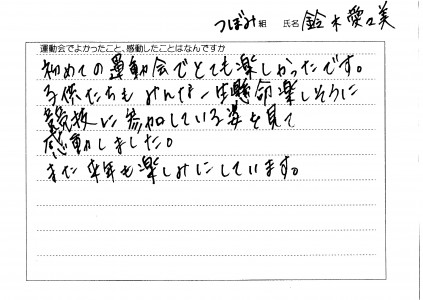 つぼみ組 氏名 鈴木愛々美
運動会でよかったこと、感動したことはなんですか
初めての運動会でとても楽しかったです。
子供たちもみんな一生懸命楽しそうに
競技に参加している姿を見て
感動しました。
また来年も楽しみにしています。